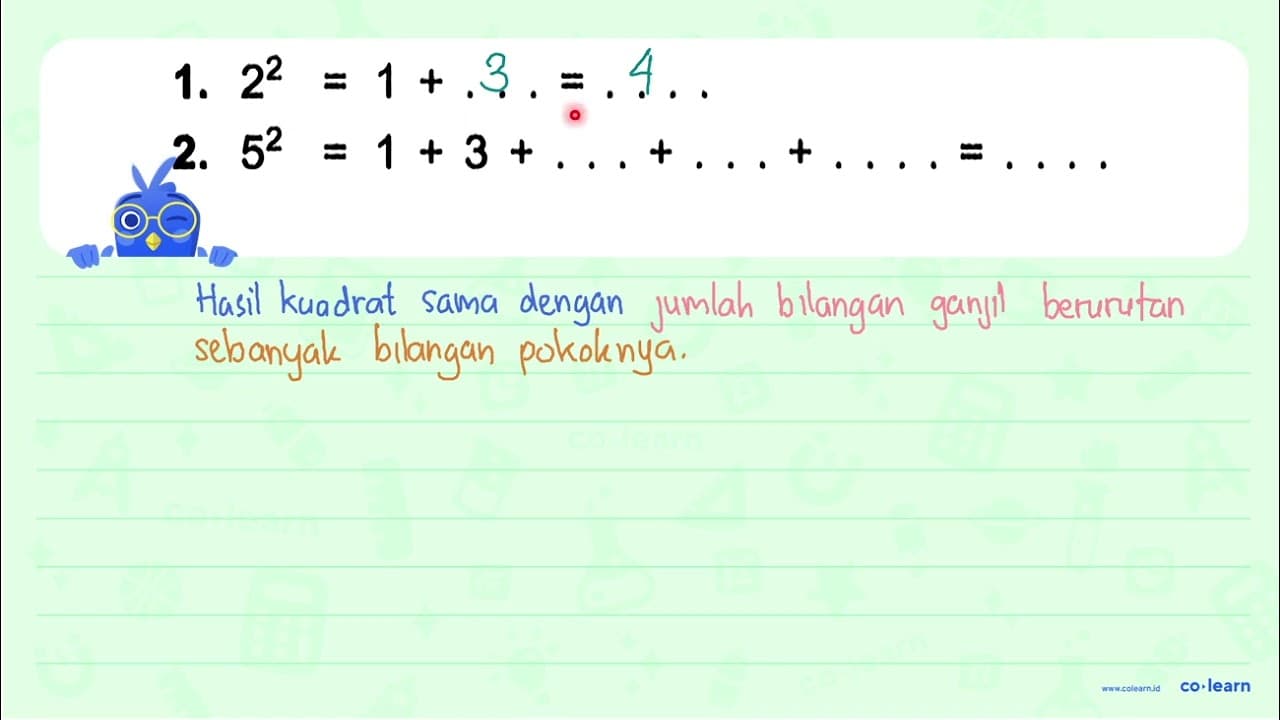 1. 2² = 1 + .3. . = . 4 . .
2. 5² = 1 + 3 + . . . + . . . + . . . . = . . . .
Hasil kuadrat sama dengan jumlah bilangan ganjil berurutan
sebanyak bilangan pokoknya.
co·learn
co·learn
co·learn
www.colearn.id co·learn